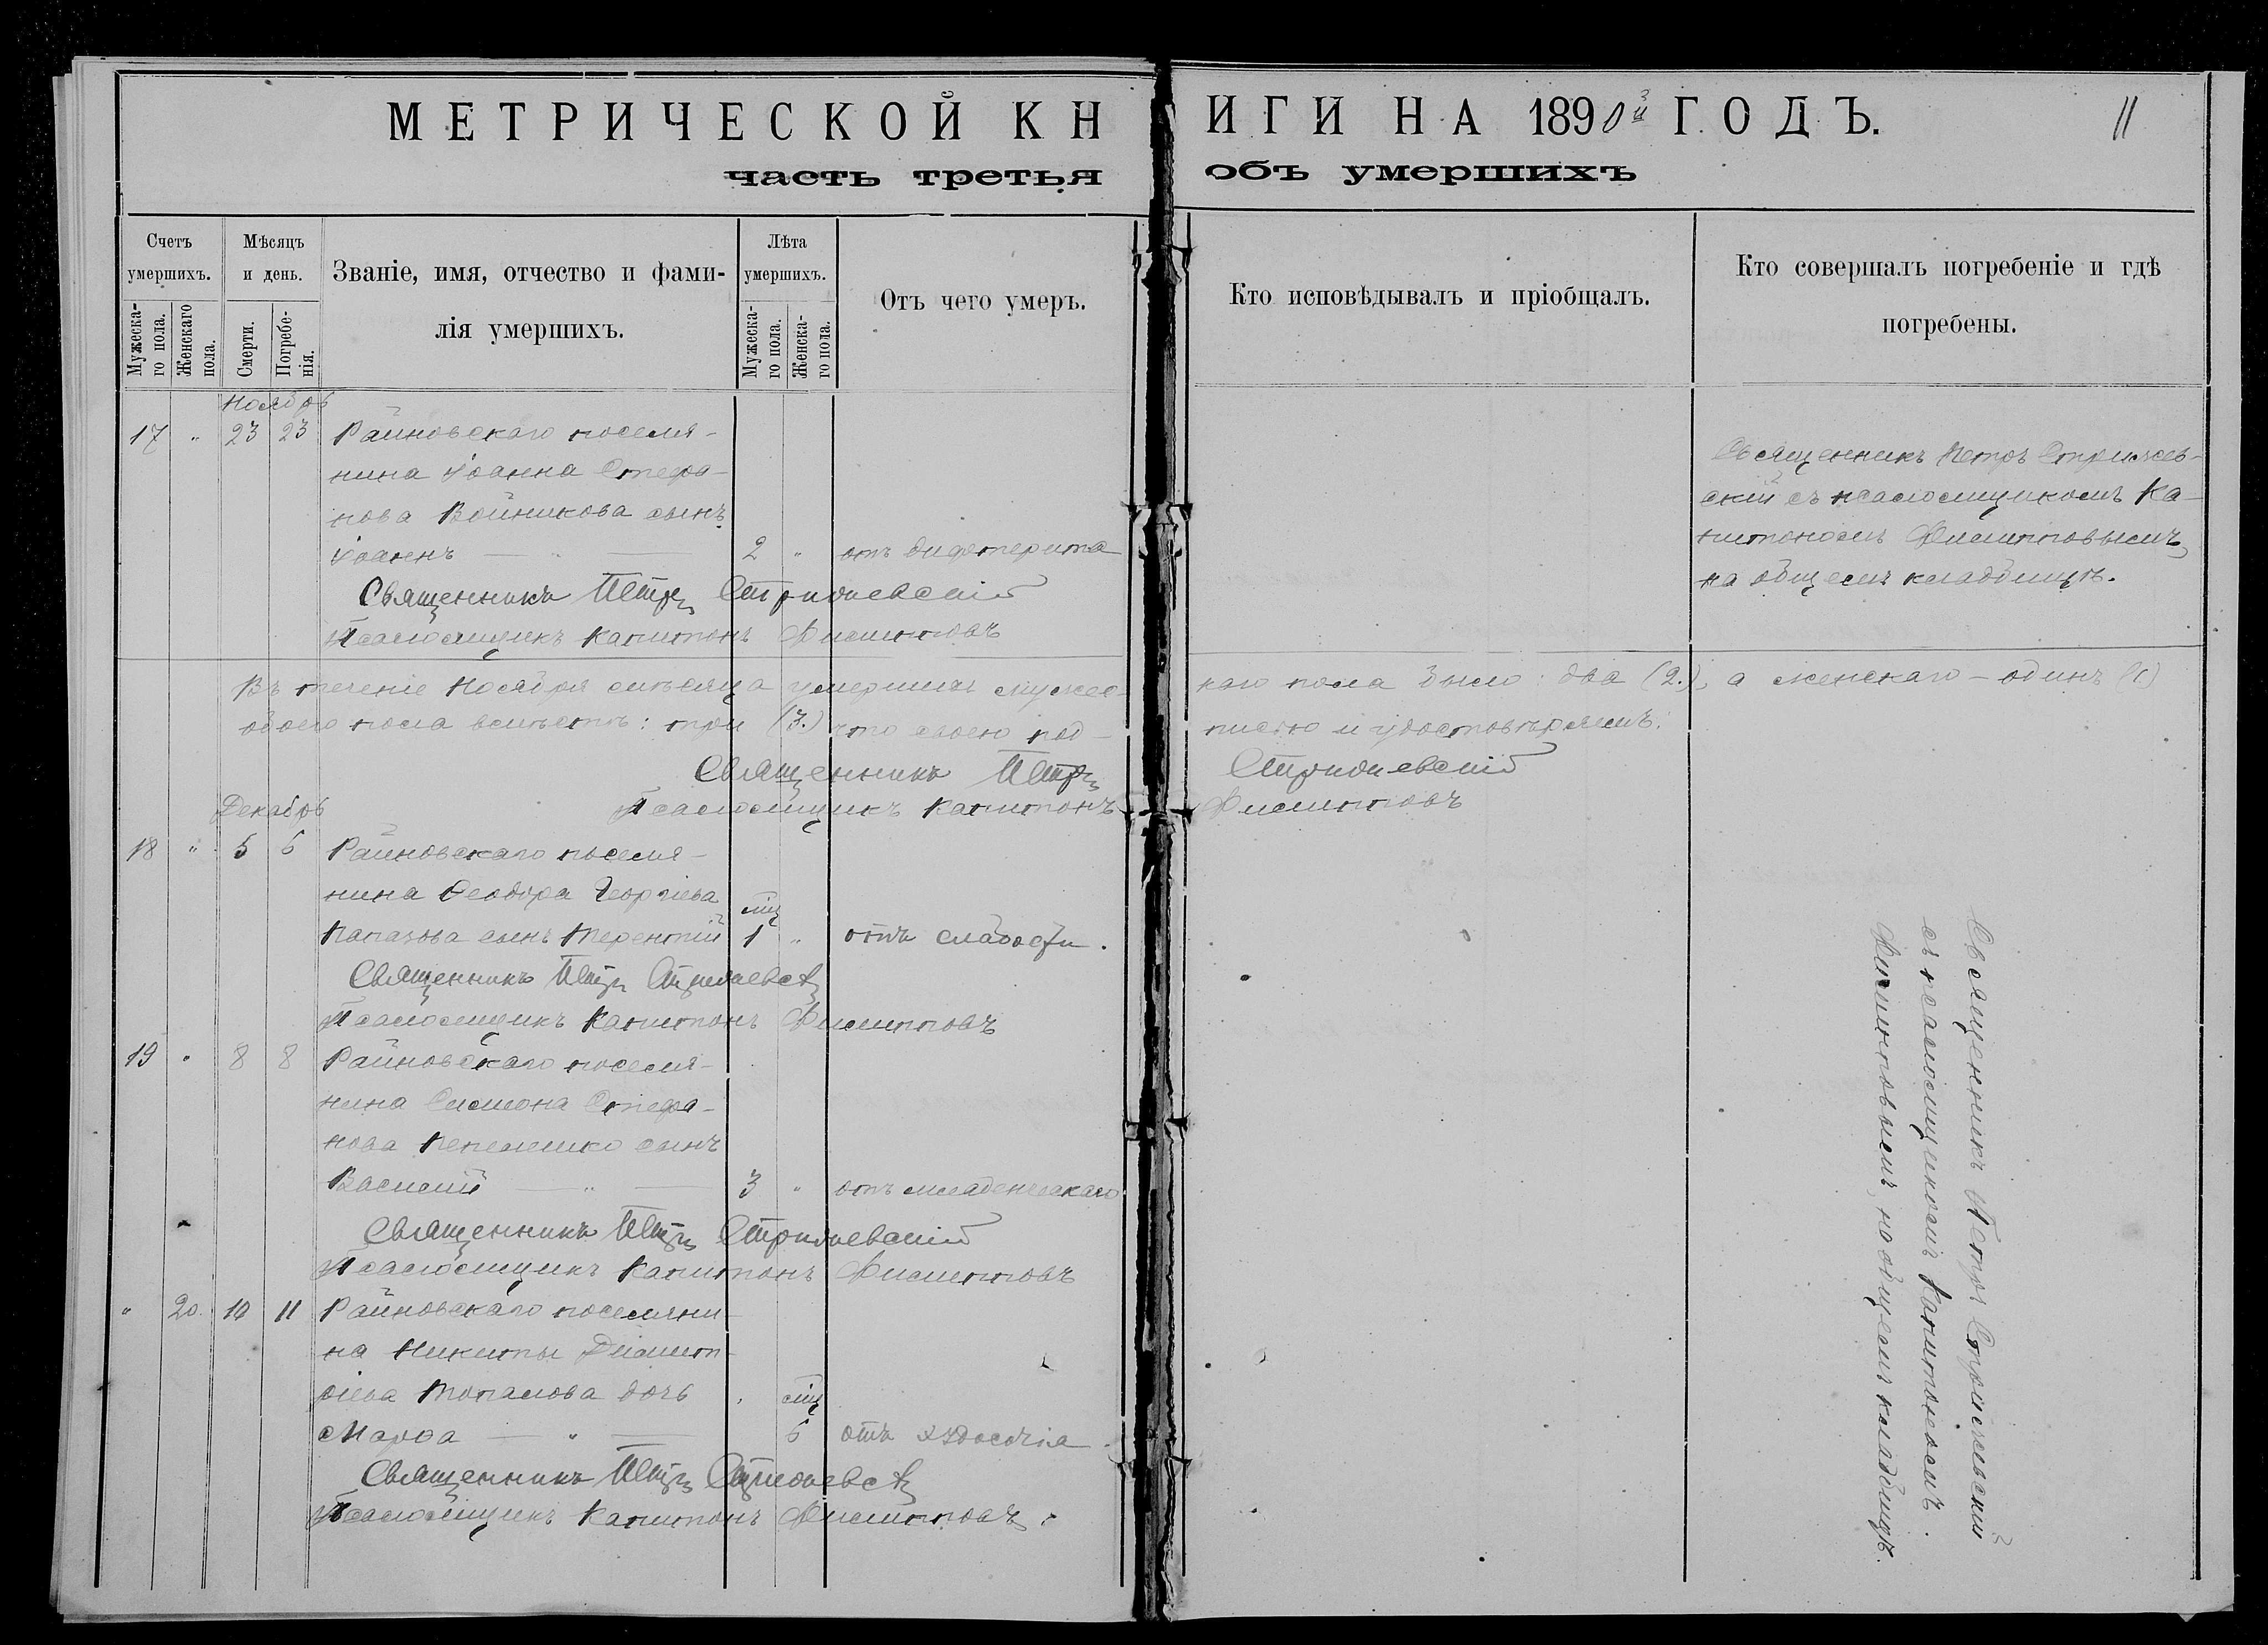 МЕТРИЧЕСКОЙ КНИГИ НА 1890й ГОДЪ.
11
часть третья объ умершихъ
Счетъ умершихъ.
Мужеска-го пола.
Женскаго пола.
Мѣсяцъ и день.
Смерти.
Погребе-нія.
Званіе, имя, отчество и фами-
лія умершихъ.
Лѣта умершихъ.
Мужеска-го пола.
Женска-го пола.
Отъ чего умеръ.
Кто исповѣдывалъ и пріобщалъ.
Кто совершалъ погребеніе и гдѣ
погребены.
Ноябрь
17 " 23 23 Раиновскаго поселя-
нина Іоанна Стефа-
нова Войникова сынъ
Іоаннъ — " — 2 " отъ дифтерита
Священникъ Петръ Стрижевскій
Псаломщикъ Капитонъ Филипповъ
Священникъ Петръ Стрижев-
скій съ псаломщикомъ Ка-
питономъ Филипповымъ
на общемъ кладбищѣ.
Въ теченіе Ноября мѣсяца умершихъ мужес-
каго пола было: два (2.), а женскаго — одинъ (1)
обоего пола вмѣстѣ: три (3.) что своею под-
писью и удостовѣряемъ:
Священникъ Петръ Стрижевскій
Псаломщикъ Капитонъ Филипповъ
Декабрь
18 " 5 6 Раиновскаго поселя-
нина Ѳеодора Георгіева
Папазова сынъ Терентій мц 1 " отъ слабости.
Священникъ Петръ Стрижевскій
Псаломщикъ Капитонъ Филипповъ
19 " 8 8 Раиновскаго поселя-
нина Симеона Стефа-
нова Пепелешко сынъ
Василій — " — 3 " отъ младенческаго
Священникъ Петръ Стрижевскій
Псаломщикъ Капитонъ Филипповъ
" 20. 10 11 Раиновскаго поселяни-
на Никиты Димит-
ріева Топалова дочь
Марѳа — " — " мц 6 отъ худосочія.
Священникъ Петръ Стрижевскій
Псаломщикъ Капитонъ Филипповъ.
Священникъ Петръ Стрижевскій
съ псаломщикомъ Капитономъ
Филипповымъ, на общемъ кладбищѣ.